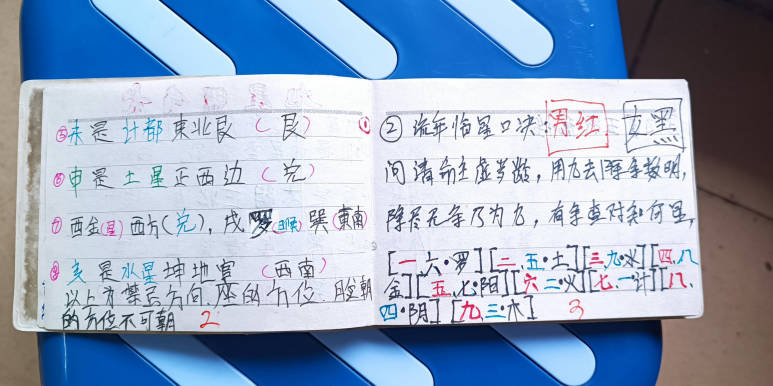 ⑤未是计都東北艮(艮)
⑥申是土星正西边(兑)
⑦酉金(星)西方(兑),戌罗(睺)巽(東南)
⑧亥是水星坤地宫(西南)
以上为禁忌方向.座的方位.
的方位不可朝 2
① ②流年值星口决 男红 女黑
问清命主虚岁数,用九去除年数明,
除尽无余乃为九,有余查对知何星,
[一.六·罗][二.五·土][三.九·水][四.八
金][五.七·阳][六.二·火][七.一·计][八.
四·阴][九.三·木] 3